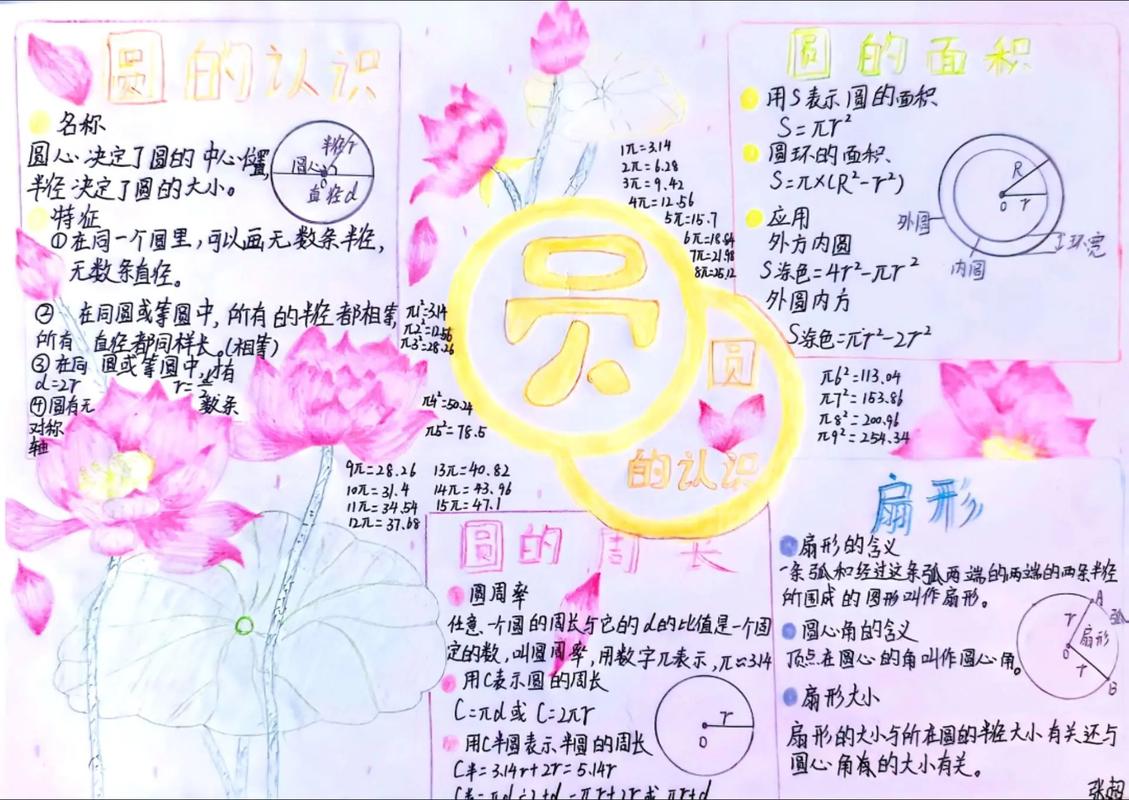 圆的认识
名称
圆心决定了圆的中心位置,
半径决定了圆的大小。
半径r
圆心
O
直径d
特征
①在同一个圆里,可以画无数条半径,
无数条直径。
② 在同圆或等圆中,所有的半径都相等,
所有 直径都同样长。(相等)
③在同 圆或等圆中,
d=2r
④圆有无 数条
对称
轴
1π=3.14
2π=6.28
3π=9.42
4π=12.56
5π=15.7
6π=18.84
7π=21.98
8π=25.12
π1²=3.14
π2²=12.56
π3²=28.26
π4²=50.24
π5²=78.5
圆
圆
的认识
9π=28.26
10π=31.4
11π=34.54
12π=37.68
13π=40.82
14π=43.96
15π=47.1
圆的面积
用S表示圆的面积
S=πr²
圆环的面积
S=π×(R²-r²)
应用
外方内圆
S涂色=4r²-πr²
外圆内方
S涂色=πr²-2r²
R
r
O
外圆
内圆
环宽
π6²=113.04
π7²=153.86
π8²=200.96
π9²=254.34
圆的周长
圆周率
任意一个圆的周长与它的d的比值是一个固
定的数,叫圆周率,用数字π表示,π≈3.14
用C表示圆的周长
C=πd或 C=2πr
用C半圆表示半圆的周长
C半=3.14r+2r=5.14r
r
O
扇形
扇形的含义
一条弧和经过这条弧两端的两端的两条半径
所围成的图形叫作扇形。
圆心角的含义
顶点在圆心的角叫作圆心角。
扇形大小
扇形的大小与所在圆的半径大小有关还与
圆心角的大小有关。
A
弧
r
扇形
O
r
B
张超